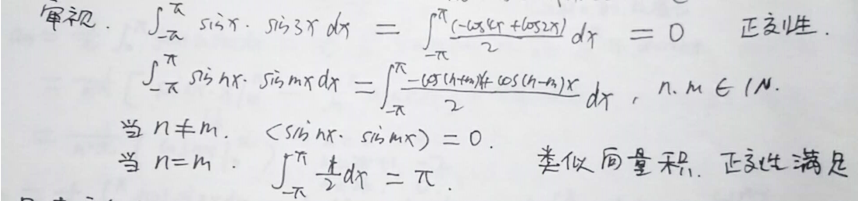 审视. ∫_{-π}^{π} sinx · sin3x dx = ∫_{-π}^{π} (-cos4x + cos2x)/2 dx = 0 正交性.
∫_{-π}^{π} sin nx · sin mx dx = ∫_{-π}^{π} (-cos(n+m)x + cos(n-m)x)/2 dx, n.m ∈ IN.
当 n≠m. <sin nx · sin mx> = 0.
当 n=m. ∫_{-π}^{π} 1/2 dx = π. 类似向量积. 正交性满足